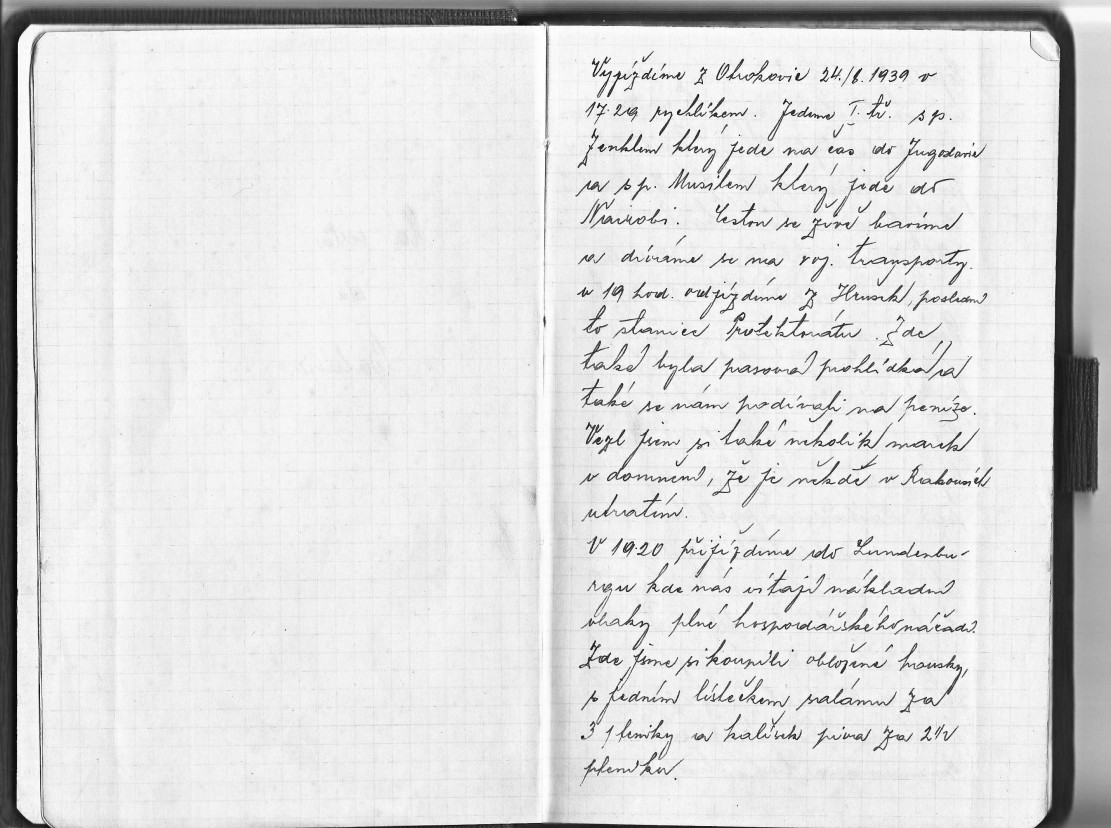 Vyjíždíme z Otrokovic 24./8. 1939 v
17.29 rychlíkem. Jedeme I. tř. s p.
Zenklem který jede na čas do Jugoslavie
a s p. Musilem který jede do
Nairobi. Cestou se živě bavíme
a díváme se na voj. transporty.
v 19 hod. odjíždíme z Hrušek, poslední
to stanice Protektorátu. Zde
také byla pasová prohlídka a
také se nám podívali na peníze.
Vezl jsem si také několik marek
v domnění, že je někde v Rakousích
utratím.
V 19.20 přijíždíme do Lundenbu-
rgu kde nás vítají nákladní
vlaky plné hospodářského náčadí.
Zde jsme si koupili obložené housky,
s jedním lístečkem salámu za
3 feniky a kalíšek piva za 2 1/2
pfeniku.